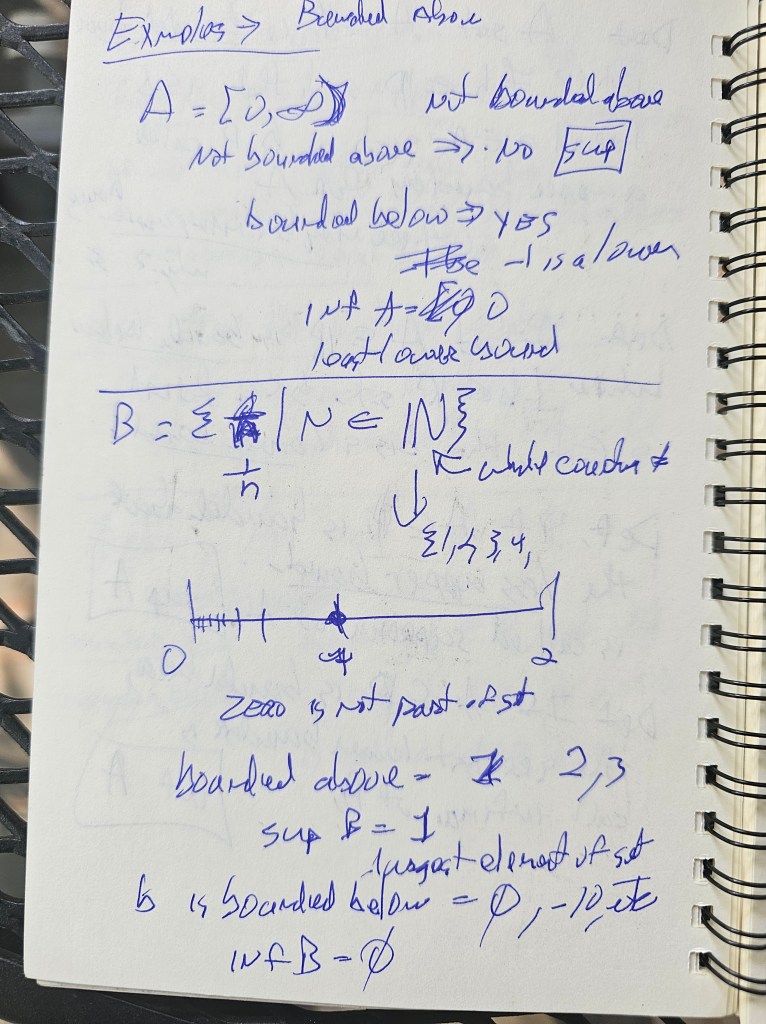 Exmples → Bounded Above
A = [0, ∞) not bounded above
Not bounded above ⇒ · No sup
bounded below ⇒ YES
-1 is a lower
INF A = 0
least lower bound
B = { 1/n | N ∈ ℕ }
whole counting #
↓
{1, 2, 3, 4,
0 1 2
zero is not part of set
bounded above = 1 2,3
sup B = 1
largest element of set
b is bounded below = 0, -10, etc
INF B = 0